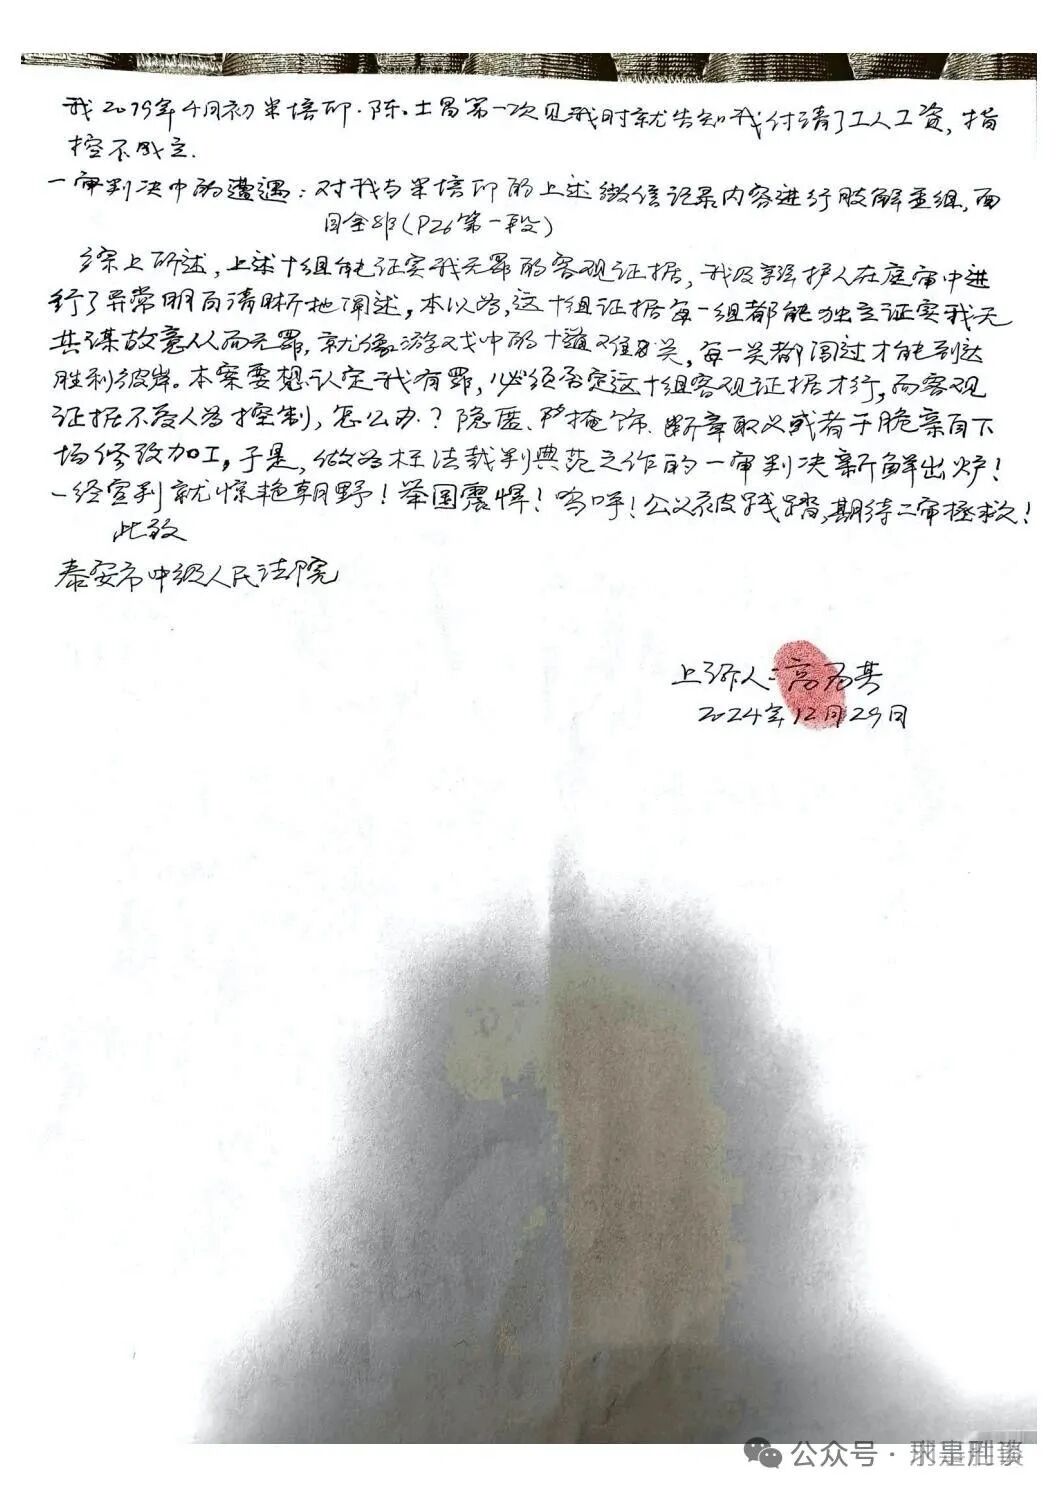 我2019年4月初米培印、陈士昌第一次见我时就告知我付清了工人工资，指
控不成立.
一审判决中的遭遇：对我与米培印的上述微信记录内容进行肢解重组，面
目全非(P26第一段)
综上所述，上述十组能证实我无罪的客观证据，我及辩护人在庭审中进
行了异常明而清晰地阐述，本以为，这十组证据每一组都能独立证实我无
共谋故意从而无罪，就像游戏中的十道难关，每一关都闯过才能到达
胜利彼岸。本案要想认定我有罪，必须否定这十组客观证据才行，而客观
证据不受人为控制，怎么办？隐匿、掩饰、断章取义或者干脆亲自下
场修改加工，于是，做为枉法裁判典范之作的一审判决新鲜出炉！
一经宣判就惊艳朝野！举国震惊！呜呼！公义被践踏，期待二审拯救！
此致
泰安市中级人民法院
上诉人：高为其
2024年12月29日
公众号·